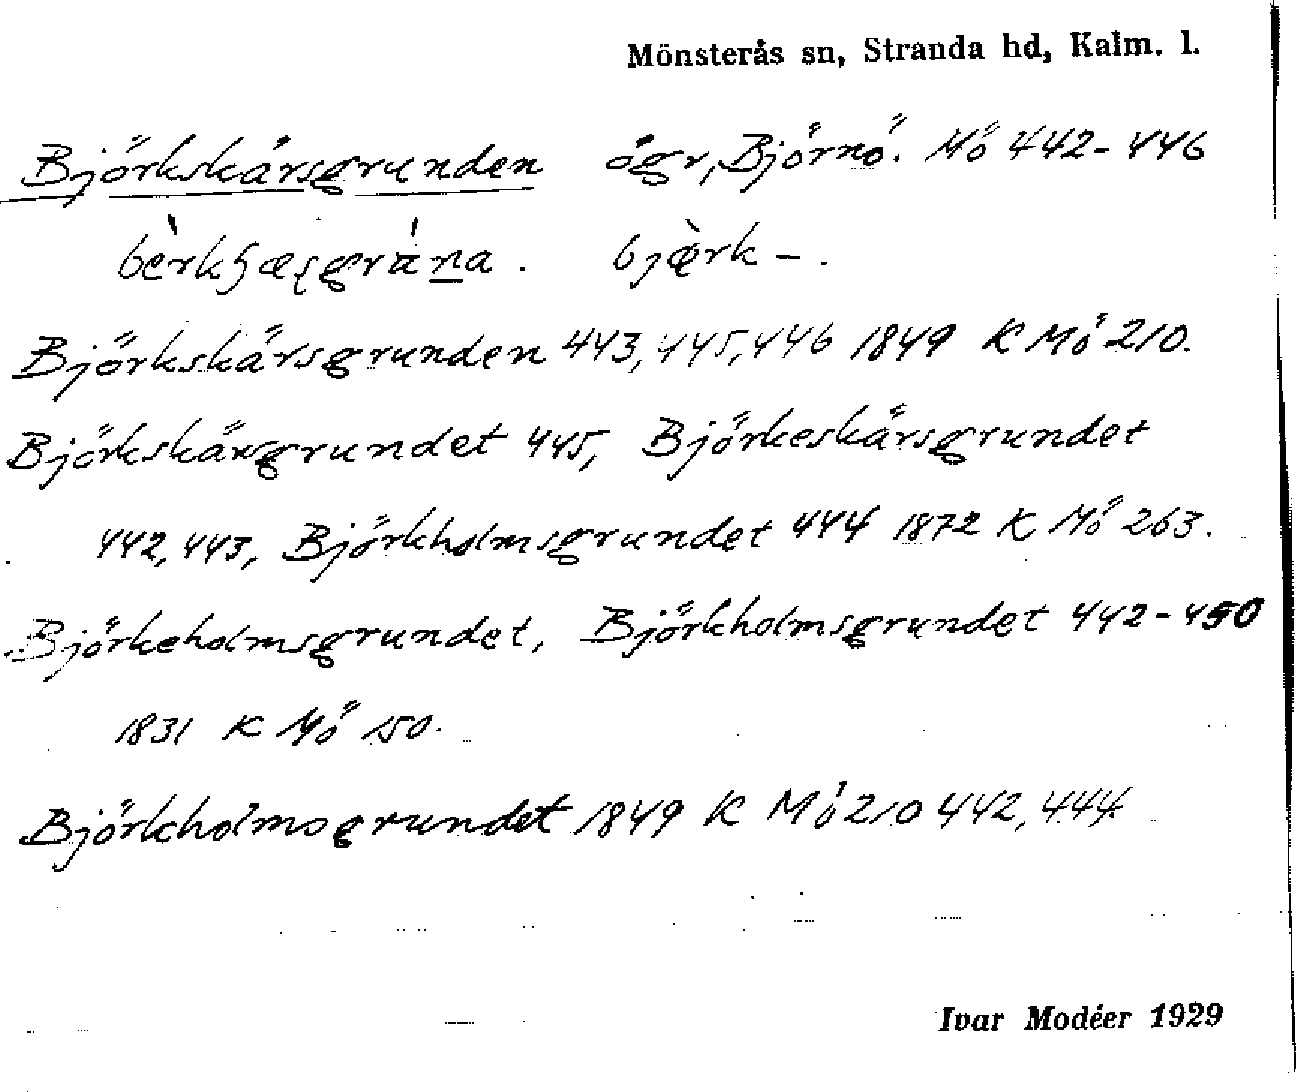 Mönsterås sn, Stranda hd, Kalm. l.
Björkskärsgrunden ögr, Björnö. Mö 442-446
bjærk-.
Björkskärsgrunden 443, 445, 446 1849 K Mö 210.
Björkskärsgrundet 445, Björkeskärsgrundet
442, 443, Björkholmsgrundet 444 1872 K Mö 263.
Björkeholmsgrundet, Björkholmsgrundet 442-450
1831 K Mö 150.
Björkholmsgrundet 1849 K Mö 210 442, 444
Ivar Modéer 1929